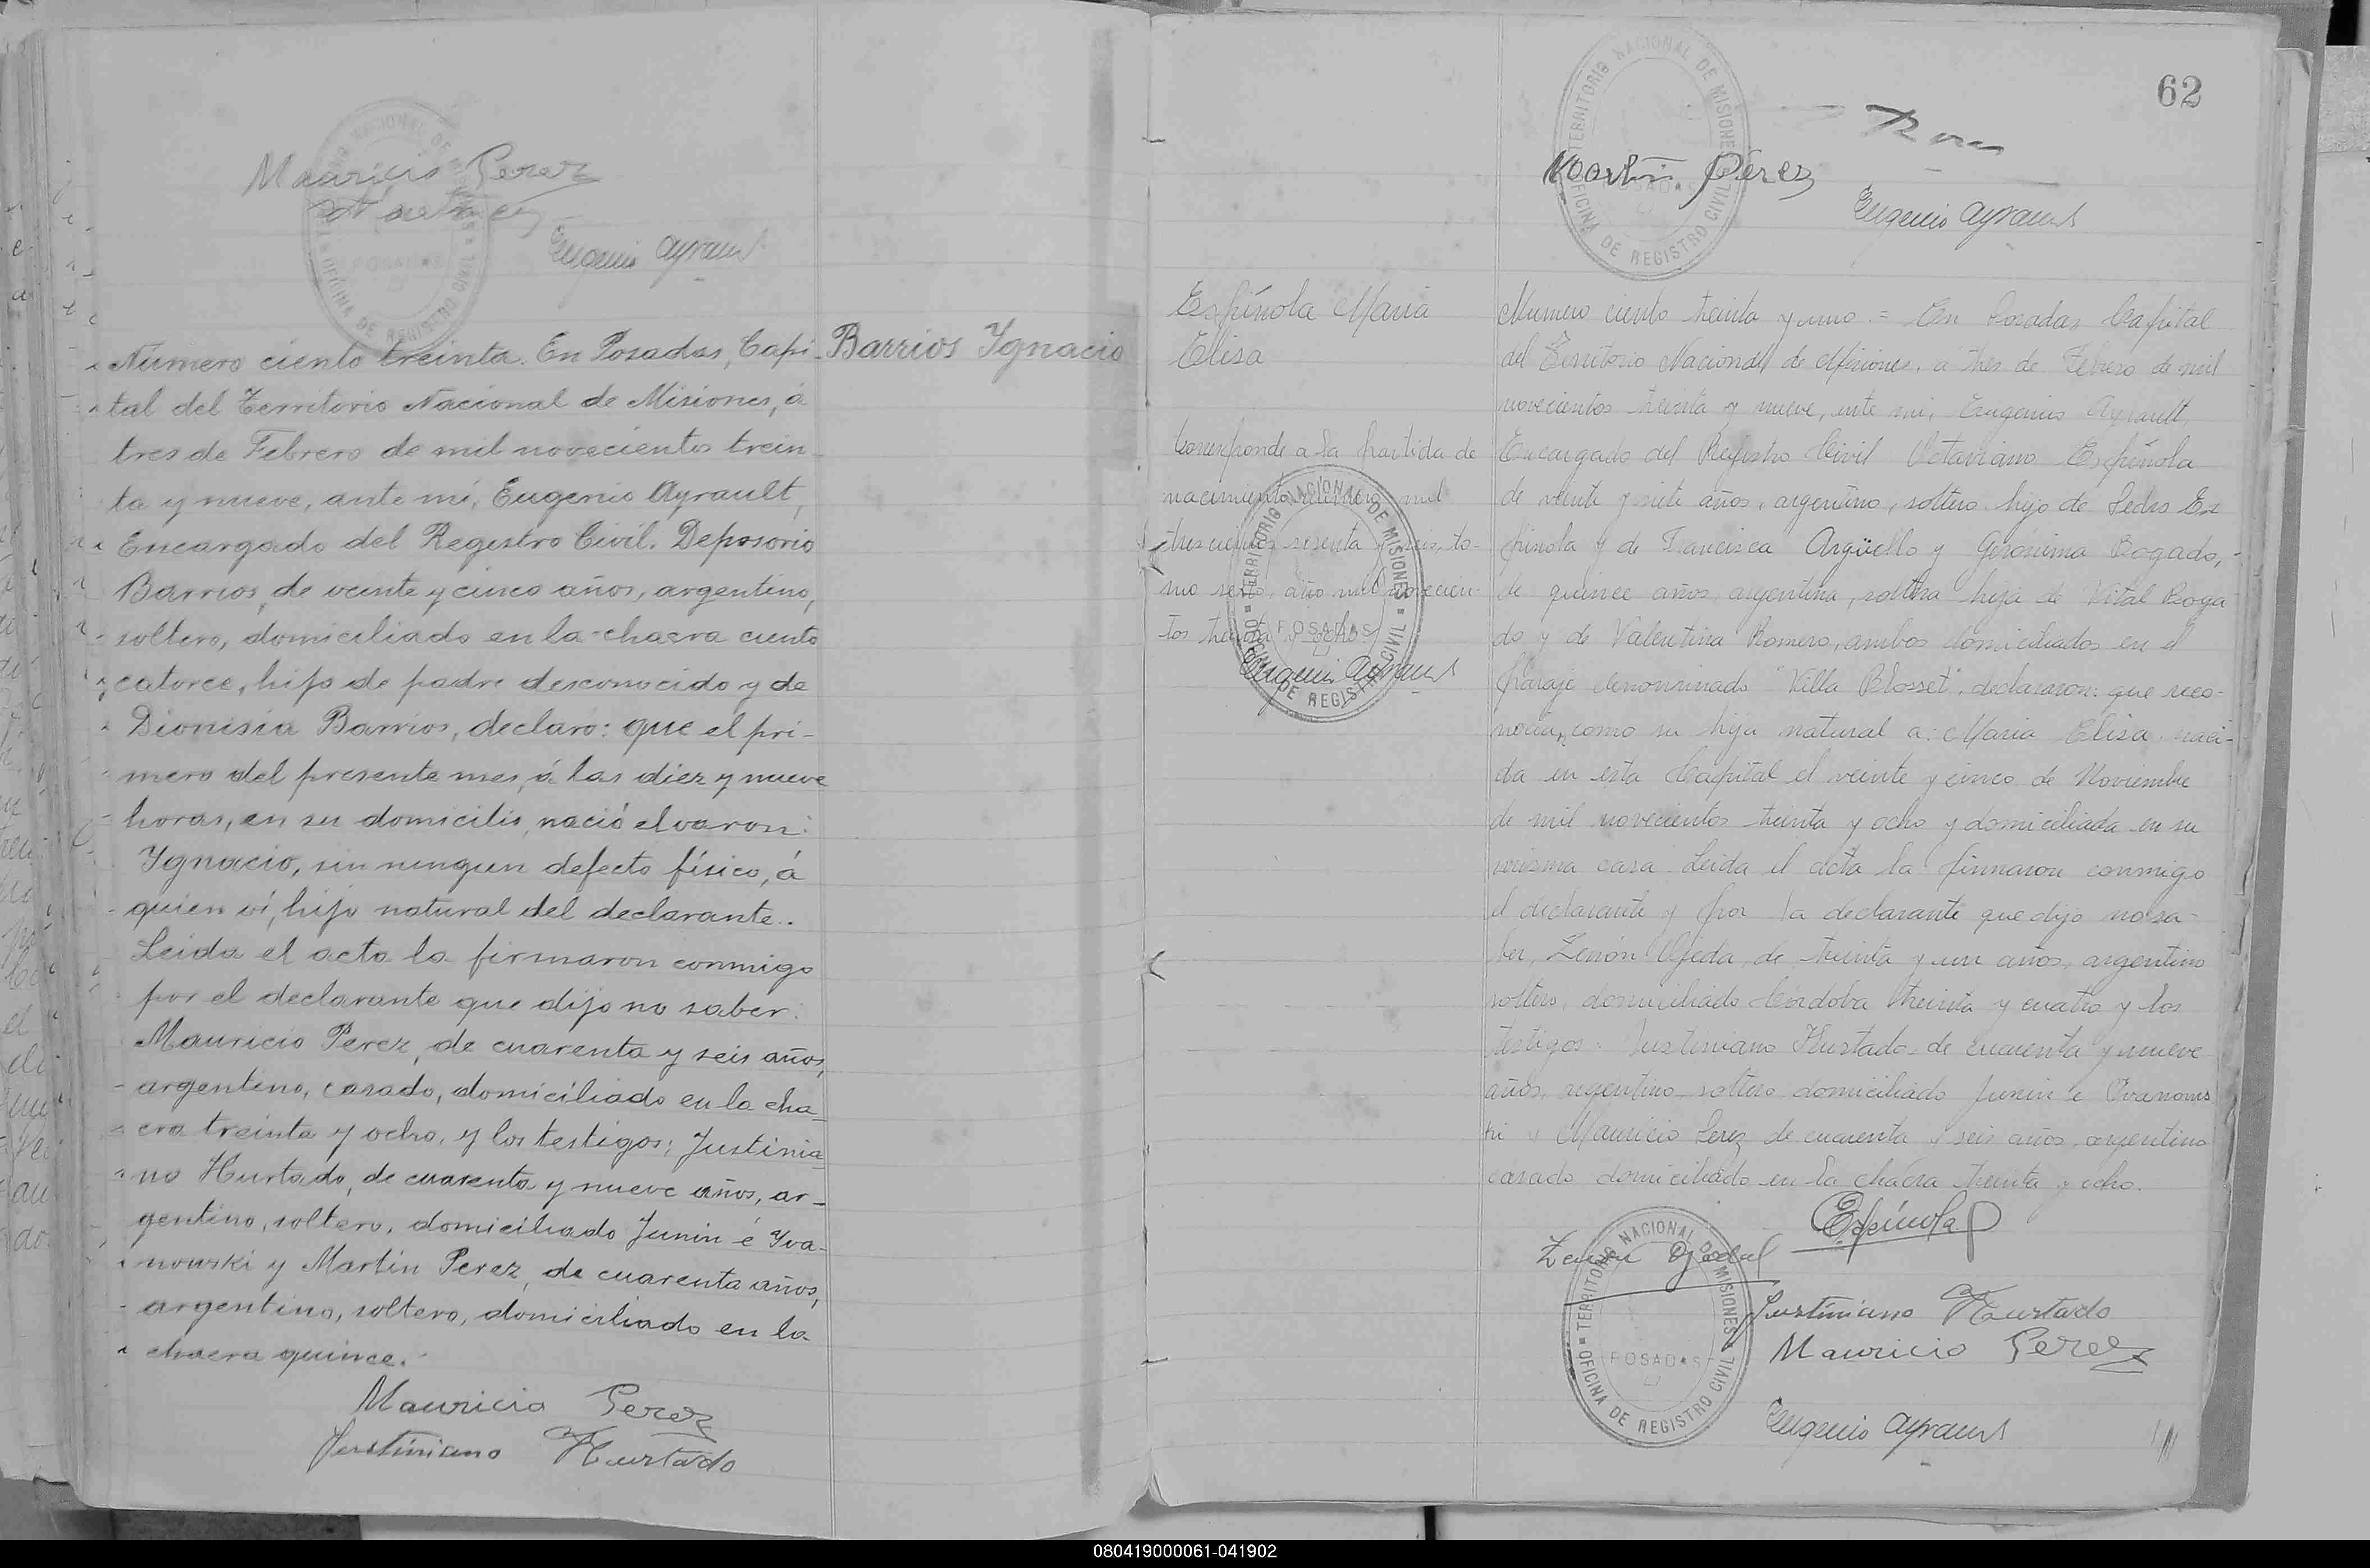 Mauricio Perez
Eugenio Ayrault
TERRITORIO NACIONAL DE MISIONES
POSADAS
OFICINA DE REGISTRO CIVIL
Número ciento treinta. En Posadas, Capi-
Barrios Ygnacio
tal del Territorio Nacional de Misiones, á
tres de Febrero de mil novecientos trein-
ta y nueve, ante mí, Eugenio Ayrault,
Encargado del Registro Civil. Deposorio
Barrios, de veinte y cinco años, argentino,
soltero, domiciliado en la chacra ciento
catorce, hijo de padre desconocido y de
Dionisia Barrios, declaro: que el pri-
mero del presente mes, á las diez y nueve
horas, en su domicilio, nació el varon:
Ygnacio, sin ningun defecto físico, á
quien ví, hijo natural del declarante..
Leida el acta la firmaron conmigo
por el declarante que dijo no saber:
Mauricio Perez, de cuarenta y seis años,
argentino, casado, domiciliado en la cha-
cra treinta y ocho, y los testigos; Justinia-
no Hurtado, de cuarenta y nueve años, ar-
gentino, soltero, domiciliado Junin é Yva-
nowski y Martin Perez, de cuarenta años,
argentino, soltero, domiciliado en la
chacra quince.
Mauricio Perez
Justiniano Hurtado
62
TERRITORIO NACIONAL DE MISIONES
POSADAS
OFICINA DE REGISTRO CIVIL
Martin Perez
Eugenio Ayrault
Espínola Maria
Elisa
Corresponde a la partida de
nacimiento número mil
trescientos sesenta y seis, to-
mo sexto, año mil novecien-
tos treinta y ocho
Eugenio Ayrault
TERRITORIO NACIONAL DE MISIONES
POSADAS
OFICINA DE REGISTRO CIVIL
Numero ciento treinta y uno = En Posadas Capital
del Territorio Nacional de Misiones, a tres de Febrero de mil
novecientos treinta y nueve, ante mi, Eugenio Ayrault,
Encargado del Registro Civil Octaviano Espínola
de veinte y siete años, argentino, soltero hijo de Pedro Es
pinola y de Francisca Argüello y Gerónima Bogado,
de quince años, argentina, soltera hija de Vital Boga
do y de Valentina Romero, ambos domiciliados en el
paraje denominado "Villa Blosset", declararon: que reco-
nocían como su hija natural a: Maria Elisa naci-
da en esta Capital el veinte y cinco de Noviembre
de mil novecientos treinta y ocho y domiciliada en su
misma casa. Leida el acta la firmaron conmigo
el declarante y por la declarante que dijo no sa-
ber, Zenón Ojeda, de treinta y un años, argentino
soltero, domiciliado Córdoba treinta y cuatro y los
testigos: Justiniano Hurtado de cuarenta y nueve
años, argentino soltero domiciliado Junin e Ivanows
ki y Mauricio Perez de cuarenta y seis años, argentino
casado domiciliado en la chacra treinta y ocho.
Espínola
Zenón Ojeda
Justiniano Hurtado
Mauricio Perez
Eugenio Ayrault
TERRITORIO NACIONAL DE MISIONES
POSADAS
OFICINA DE REGISTRO CIVIL
080419000061-041902